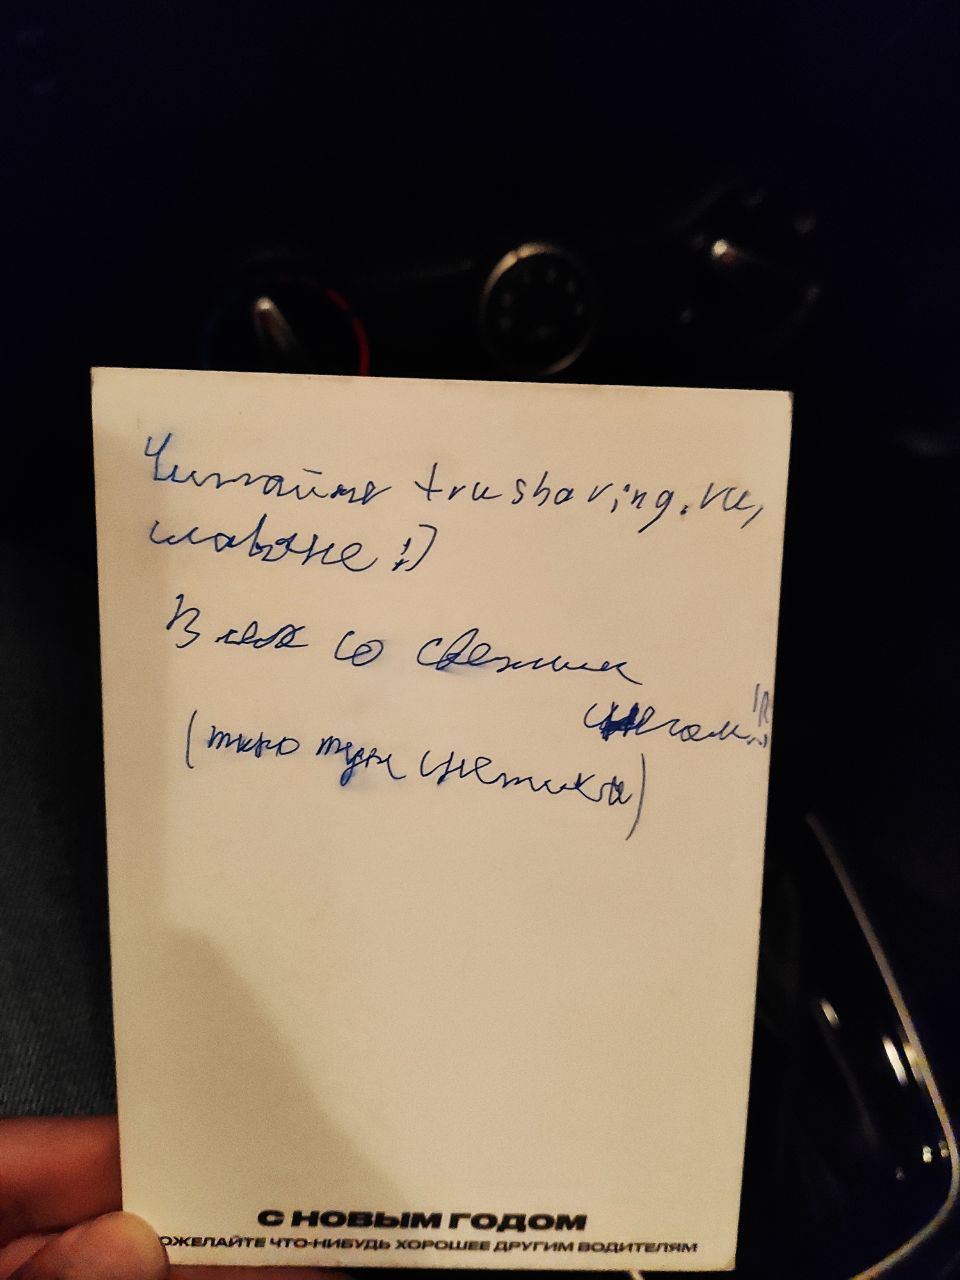 Читайте trusharing.ru,
славяне!)
Всех со свежим
снегом!!
(типо тут снежинки)
С НОВЫМ ГОДОМ
ОЖЕЛАЙТЕ ЧТО-НИБУДЬ ХОРОШЕЕ ДРУГИМ ВОДИТЕЛЯМ